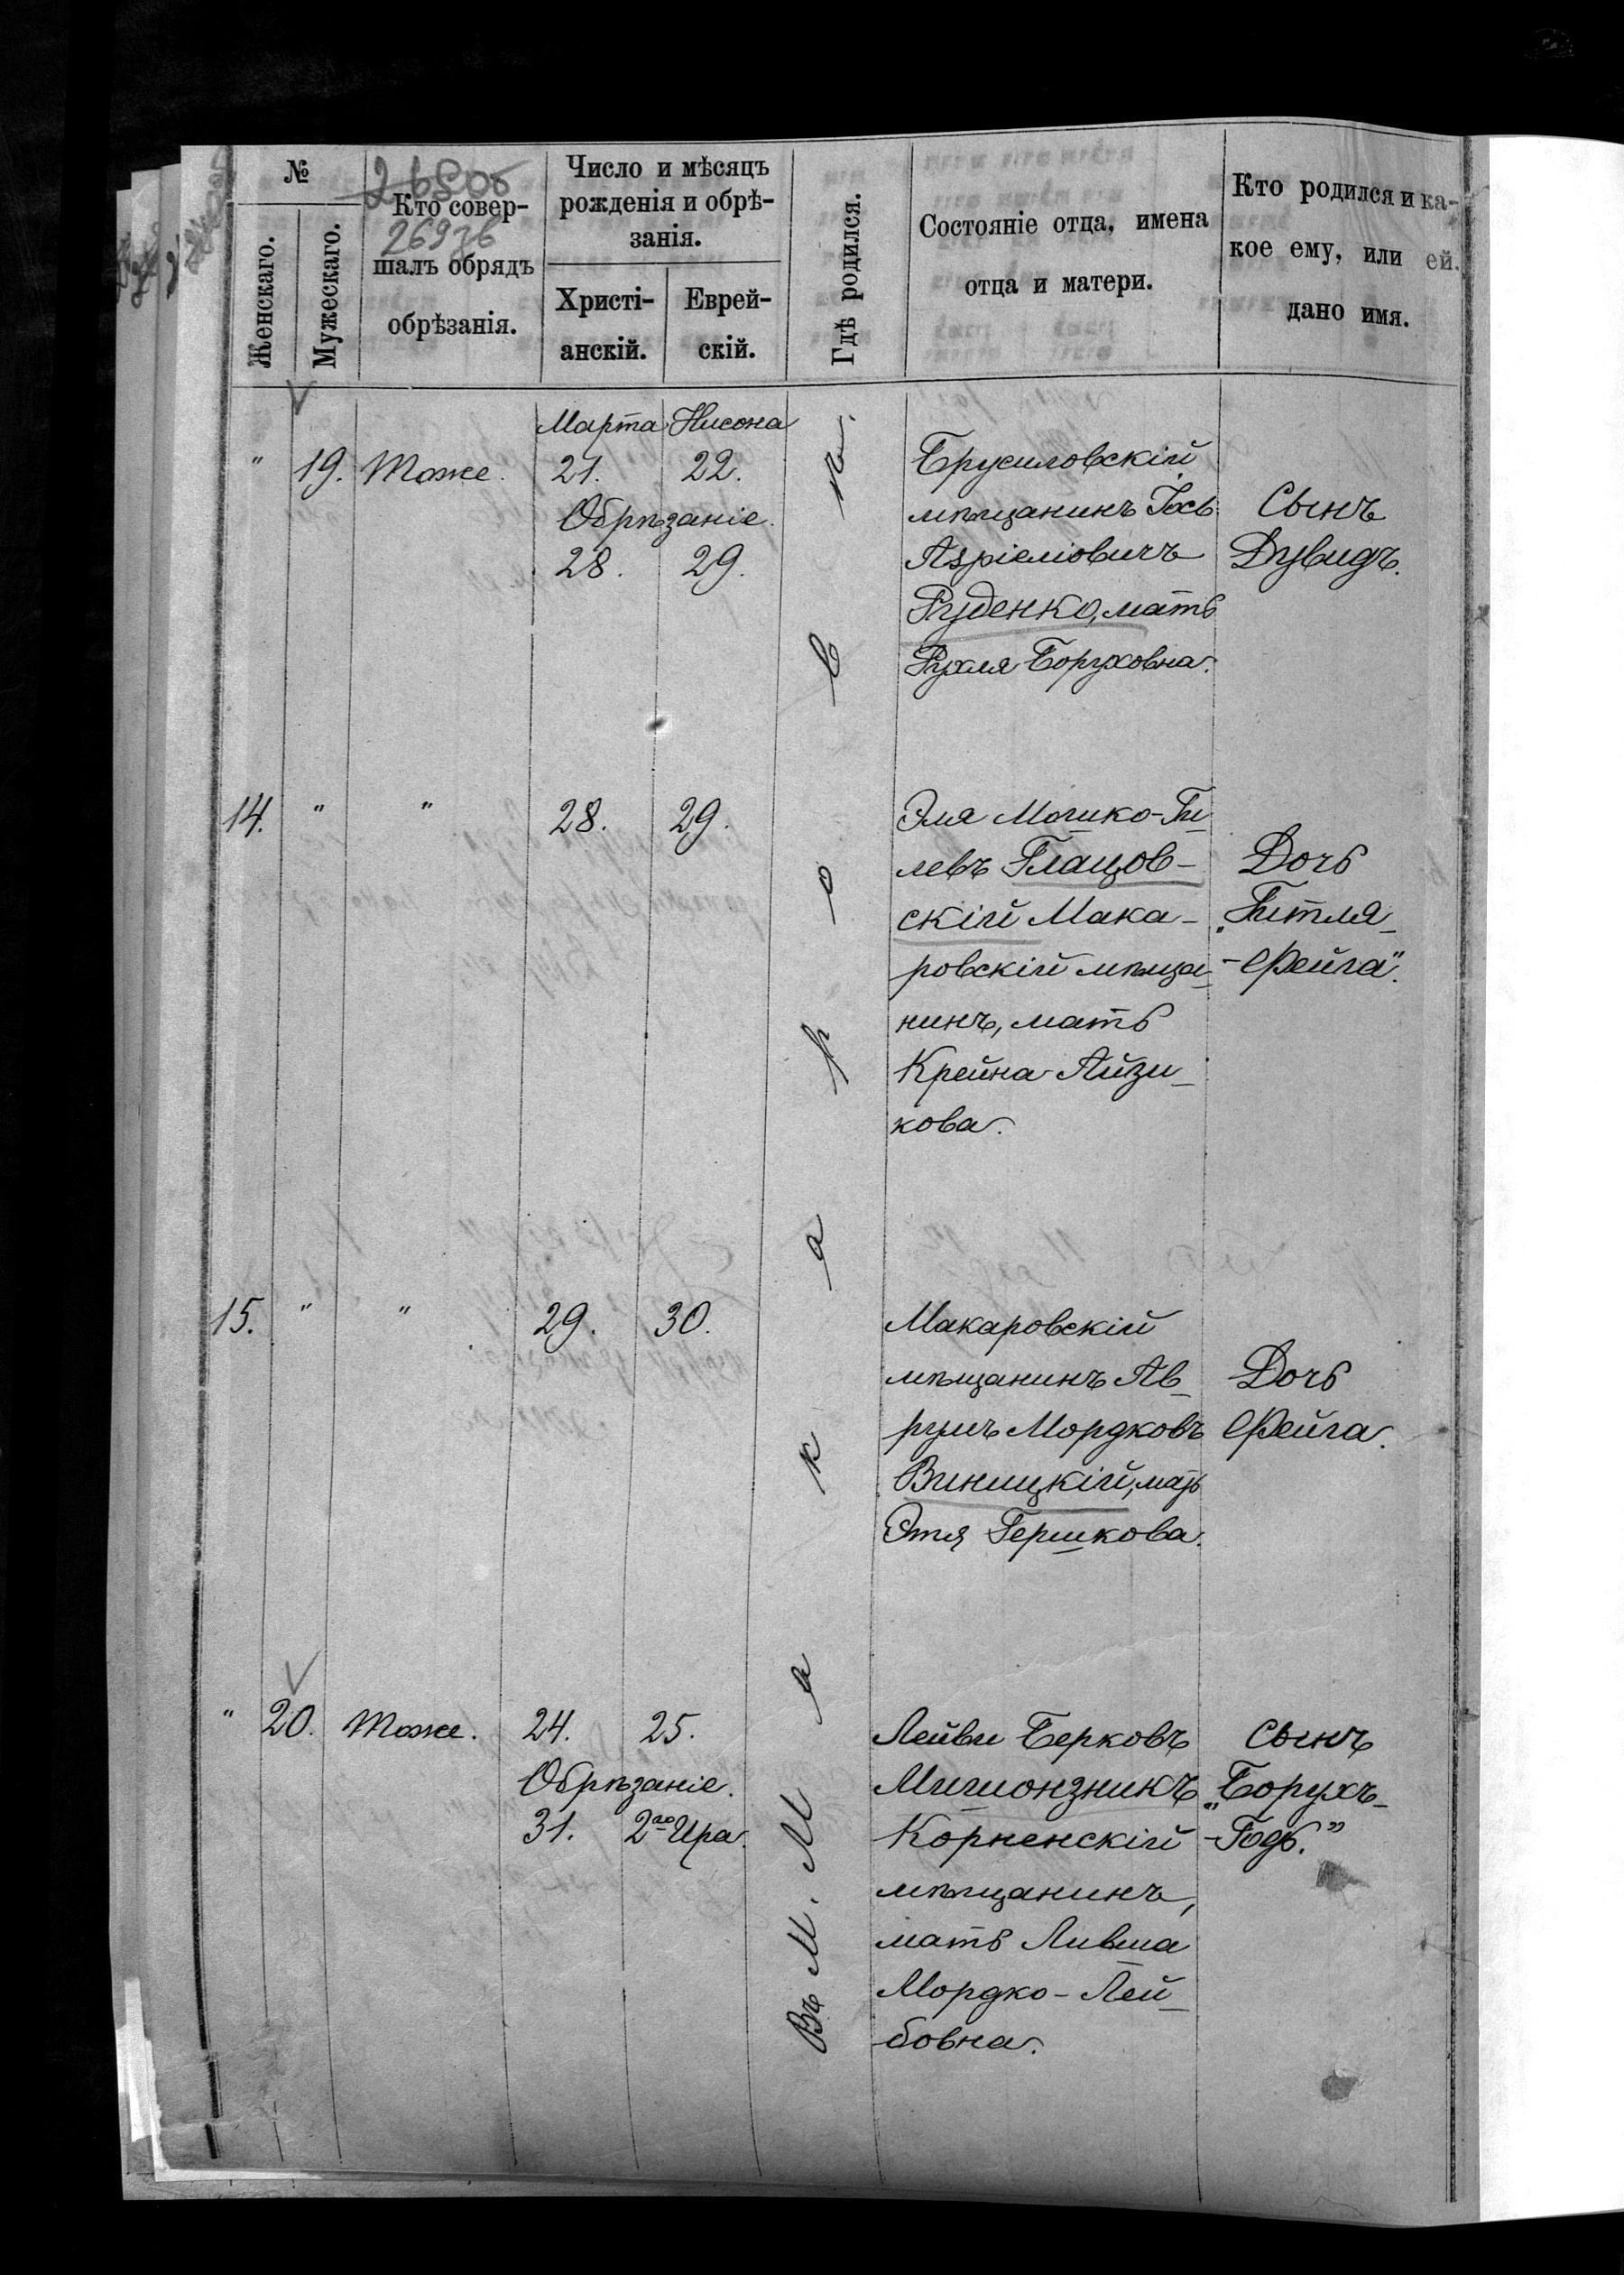 №
Женскаго.
Мужескаго.
26506
Кто совер-
шалъ обрядъ
обрѣзанія.
Число и мѣсяцъ
рожденія и обрѣ-
занія.
Христі-
анскій.
Еврей-
скій.
Гдѣ родился.
Состояніе отца, имена
отца и матери.
Кто родился и ка-
кое ему, или ей
дано имя.
Въ М. Макаровѣ.
Марта Нисона
" 19. Тоже. 21. 22.
Обрѣзаніе.
28. 29.
Брусиловскій
мѣщанинъ Іось
Азріеліовичъ
Руденко, мать
Рухля Боруховна.
Сынъ
Дувидъ.
14. " " 28. 29.
Эля Мошко-Ги-
левъ Глацов-
скій Мака-
ровскій мѣща-
нинъ, мать
Крейна Айзи-
кова.
Дочь
„Гитля-
-Фейга".
15. " " 29. 30.
Макаровскій
мѣщанинъ Ав-
румъ Мордковъ
Виницкій, мать
Этя Гершкова.
Дочь
Фейга.
" 20. Тоже. 24. 25.
Обрѣзаніе.
31. 2го Ира.
Лейви Берковъ
Корненскій
мѣщанинъ,
мать Ливша
Мордко-Лей-
бовна.
Сынъ
„Борухъ-
-Годъ."